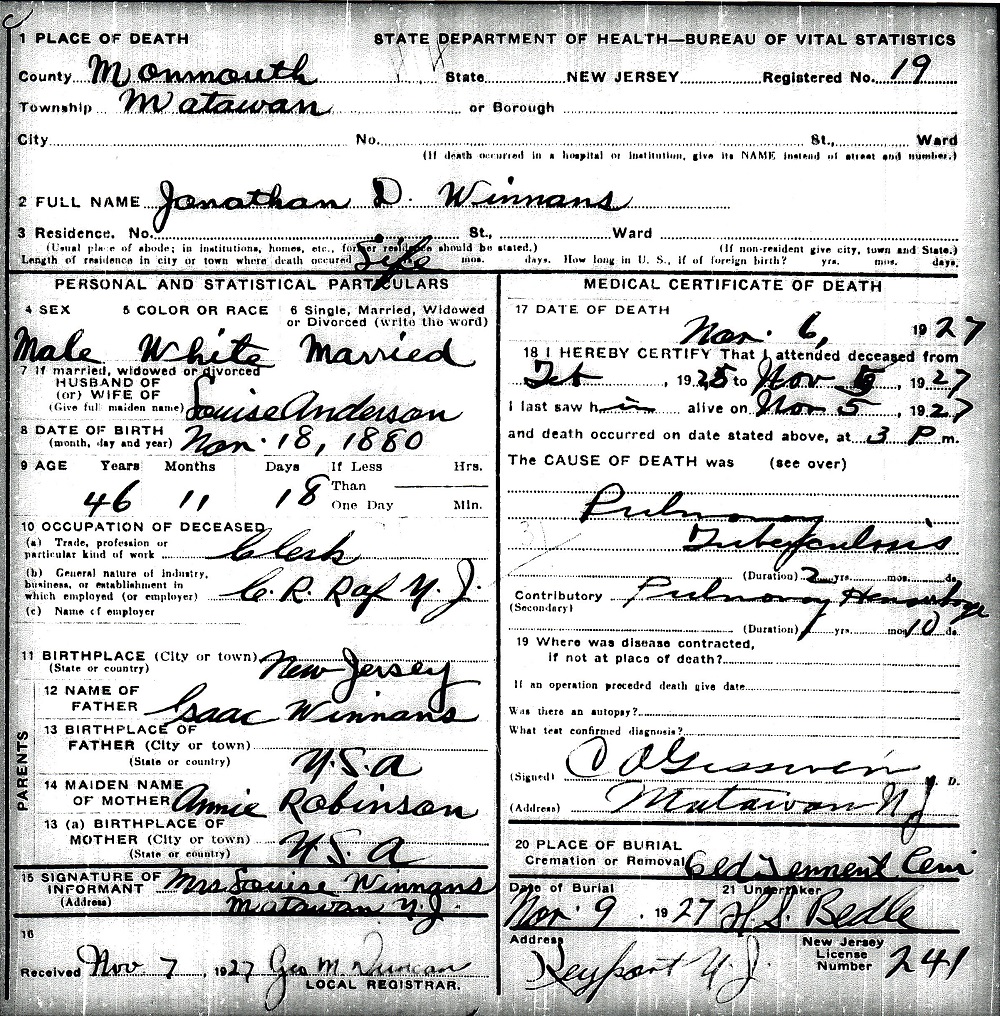 1 PLACE OF DEATH STATE DEPARTMENT OF HEALTH—BUREAU OF VITAL STATISTICS
County Monmouth State NEW JERSEY Registered No. 19
Township Matawan or Borough
City No. St., Ward
(If death occurred in a hospital or institution, give its NAME instead of street and number.)
2 FULL NAME Jonathan D. Winnans
3 Residence. No. St., Ward
(Usual place of abode; in institutions, homes, etc., former residence should be stated.) (If non-resident give city, town and State.)
Length of residence in city or town where death occured Life mos. days. How long in U. S., if of foreign birth? yrs. mos. days.
PERSONAL AND STATISTICAL PARTICULARS
4 SEX 5 COLOR OR RACE 6 Single, Married, Widowed
or Divorced (write the word)
Male White Married
7 If married, widowed or divorced
HUSBAND OF
(or) WIFE OF
(Give full maiden name) Louise Anderson
8 DATE OF BIRTH
(month, day and year) Nov. 18, 1880
9 AGE Years Months Days If Less Hrs.
Than
46 11 18 One Day Min.
10 OCCUPATION OF DECEASED
(a) Trade, profession or
particular kind of work Clerk
(b) General nature of industry,
business, or establishment in
which employed (or employer) C. R. R of N. J.
(c) Name of employer
11 BIRTHPLACE (City or town)
(State or country) New Jersey
PARENTS
12 NAME OF
FATHER Isaac Winnans
13 BIRTHPLACE OF
FATHER (City or town)
(State or country) U. S. A
14 MAIDEN NAME
OF MOTHER Annie Robinson
13 (a) BIRTHPLACE OF
MOTHER (City or town)
(State or country) U. S. A
15 SIGNATURE OF
INFORMANT Mrs. Louise Winnans
(Address) Matawan N. J.
16
Received Nov 7, 1927 Geo M. Duncan
LOCAL REGISTRAR.
MEDICAL CERTIFICATE OF DEATH
17 DATE OF DEATH
Nov. 6, 1927
18 I HEREBY CERTIFY That I attended deceased from
Feb, 1925 to Nov 5, 1927
I last saw h im alive on Nov 5, 1927
and death occurred on date stated above, at 3 P. m.
The CAUSE OF DEATH was (see over)
Pulmonary
Tuberculosis
(Duration) 2 yrs. mos. ds.
Contributory Pulmonary Hemorrhage
(Secondary)
(Duration) yrs. mos. 10 ds.
19 Where was disease contracted,
if not at place of death?
If an operation preceded death give date
Was there an autopsy?
What test confirmed diagnosis?
(Signed) M. D.
(Address) Matawan N J
20 PLACE OF BURIAL
Cremation or Removal Old Tennent Cem
Date of Burial 21 Undertaker
Nov. 9, 1927 H. S. Bedle
Address New Jersey
License
Number 241
Keyport N. J.